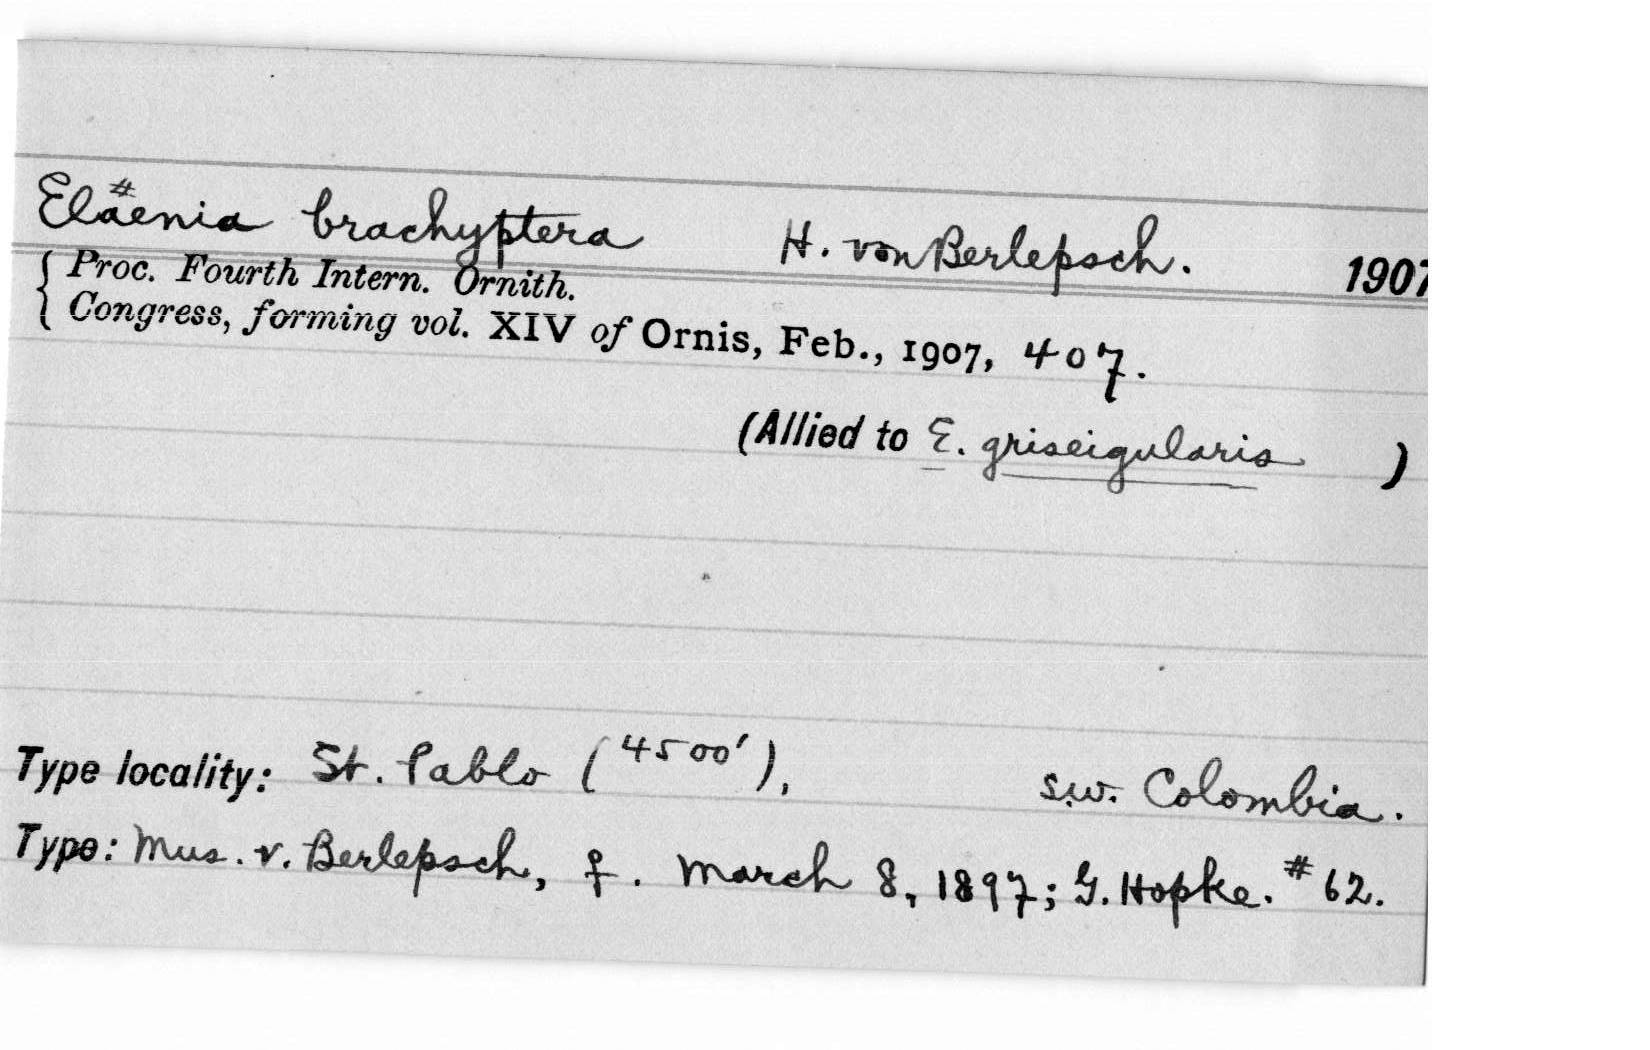 Elaenia brachyptera H. von Berlepsch. 1907
{ Proc. Fourth Intern. Ornith.
Congress, forming vol. XIV of Ornis, Feb., 1907, 407.
(Allied to E. griseigularis )
Type locality: St. Pablo (4500'), s.w. Colombia.
Type: Mus. v. Berlepsch, ♀. March 8, 1897; G. Hopke. #62.